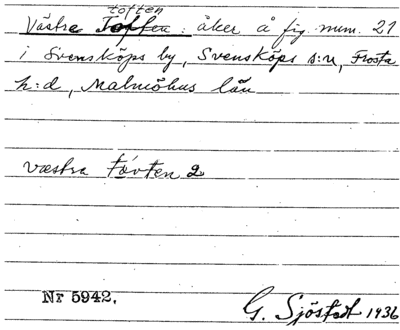 toften
Västra Toften: åker å fig. num. 21
i Svensköps by, Svensköps s:n, Frosta
h:d, Malmöhus län
væstra tóvten 2
Nr 5942.
G. Sjöstedt 1936